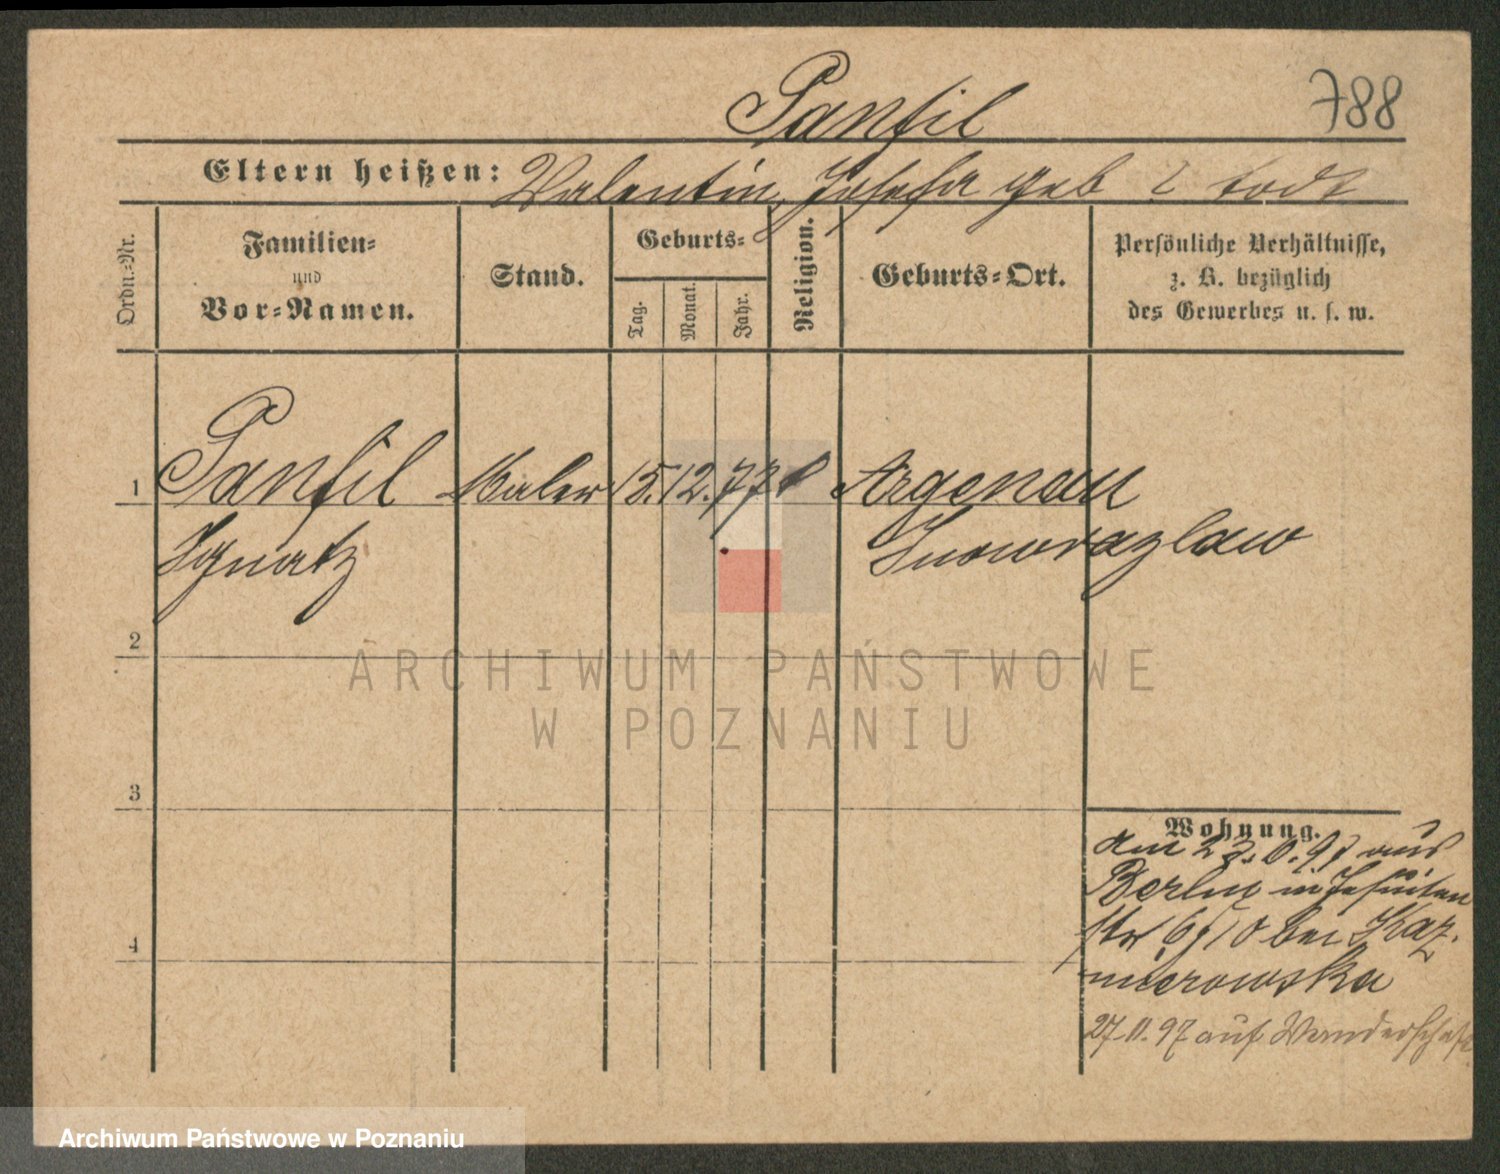 Panfil
788
Eltern heißen: Valentin, Josefa geb ? todt
Ordn.-Nr.
Familien-
und
Vor-Namen.
Stand.
Geburts-
Tag.
Monat.
Jahr.
Religion.
Geburts-Ort.
Persönliche Verhältnisse,
z. B. bezüglich
des Gewerbes u. s. w.
1 Panfil Maler 15. 12. 77 Argenau
Ignatz Inowrazlaw
2
3
4
Wohnung.
am 23. 97 aus
Berlin in Jesuiten
str bei Kaz-
mierowska
27.11.97 auf Wanderschaft
ARCHIWUM PAŃSTWOWE
W POZNANIU
Archiwum Państwowe w Poznaniu